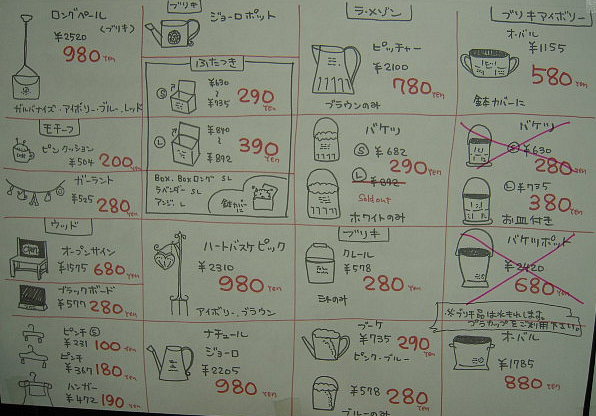 ロングペール
(ブリキ)
¥2520
980 YEN
ガルバナイズ・アイボリー・ブルー・レッド
モチーフ
ピンクッション
¥504 200 YEN
ガーラント
¥525 280 YEN
ウッド
オープンサイン
¥1575 680 YEN
ブラックボード
¥577 280 YEN
ピンチ Ⓢ
¥231 100 YEN
ピンチ
¥367 180 YEN
ハンガー
¥472 190 YEN
ブリキ
ジョーロポット
ふたつき
Ⓢ ¥630
~
¥935
290 YEN
Ⓛ ¥840
~
¥892
390 YEN
Box. Boxロング S L
ラベンダー S L
アンジェ L
鉢カバーに
ハートバスケピック
¥2310
980 YEN
アイボリー、ブラウン
ナチュール
ジョーロ
¥2205
980 YEN
ラ・メゾン
ピッチャー
¥2100
780 YEN
ブラウンのみ
バケツ
Ⓢ ¥682
290 YEN
Ⓛ ¥892
Sold out
ホワイトのみ
ブリキ
クレール
¥578
280 YEN
ミントのみ
ブーケ
¥735 290 YEN
ピンク・ブルー
¥578 280 YEN
ブルーのみ
ブリキアイボリー
オーバル
¥1155
580 YEN
鉢カバーに
バケツ
Ⓢ ¥630
280 YEN
Ⓛ ¥735
380 YEN
お皿付き
バケツポット
¥2420
680 YEN
※ブリキ品は水もれします。
プラカップをご利用下さいな
オーバル
¥1785
880 YEN